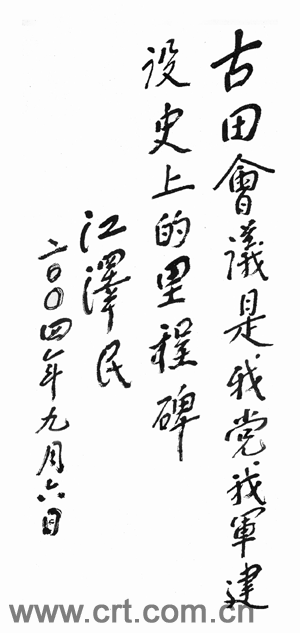 古田會議是我党我軍建
设史上的里程碑
江澤民
二〇〇四年九月六日
www.crt.com.cn